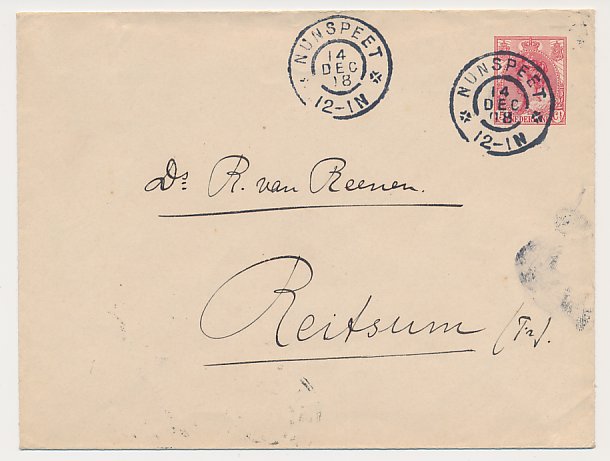 NUNSPEET
14
DEC
18
12-1N
NUNSPEET
14
DEC
18
12-1N
Ds R. van Reenen.
Reitsum (Fr).